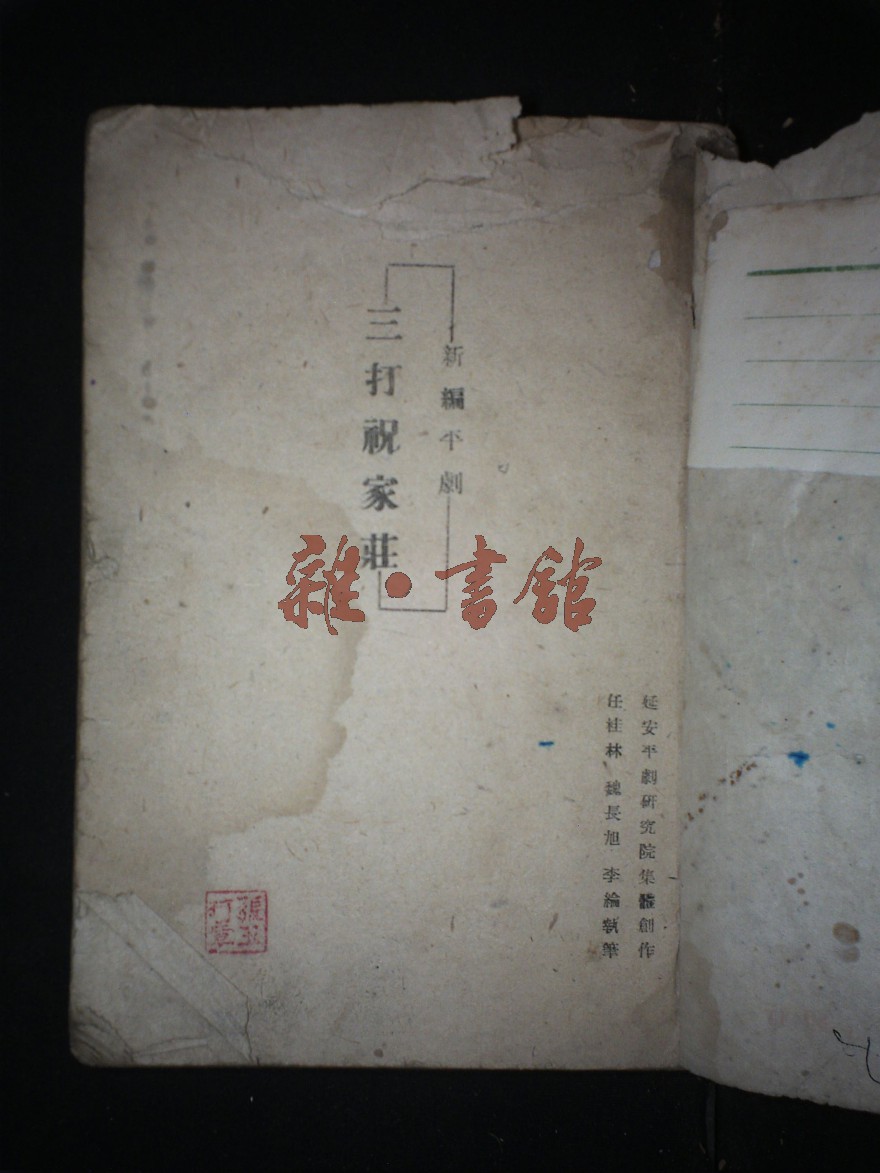 新編平劇
三打祝家莊
延安平劇研究院集體創作
任桂林 魏長旭 李綸執筆
雜·書館